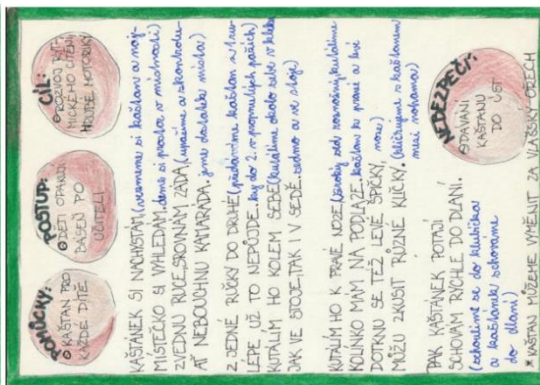 POMŮCKY:
• KAŠTAN PRO
KAŽDÉ DÍTĚ
POSTUP:
• DĚTI OPAKUJÍ
BÁSEŇ PO
UČITELI
CÍL:
• ROZVOJ RYT-
MICKÉHO CÍTĚNÍ
HRUBÉ MOTORIKY
KAŠTÁNEK SI NACHYSTÁM, (vezmeme si kaštan a naj-
MÍSTEČKO SI VYHLEDÁM. deme si prostor v místnosti)
ZVEDNU RUCE, SROVNÁM ZÁDA, (upažíme a zkontrolu-
AŤ NEBOUCHNU KAMARÁDA. jeme dostatek místa)
Z JEDNÉ RUČKY DO DRUHÉ (předáváme kaštan z 1 ru-
LÉPE UŽ TO NEPŮJDE. ky do 2. v propnutých pažích)
KUTÁLÍM HO KOLEM SEBE (kutálíme okolo sebe v kleku
JAK VE STOJE, TAK I V SEDĚ. sedmo a ve stoje)
KUTÁLÍM HO K PRAVÉ NOZE (široký sed roznožný, kutálíme
KOLÍNKO MÁM NA PODLAZE. kaštan k pravé a levé
DOTKNU SE TÉŽ LEVÉ ŠPIČKY, noze)
MŮŽU ZKUSIT RŮZNÉ KLIČKY. (kličkujeme s kaštanem
mezi nohama)
PAK KAŠTÁNEK POTAJÍ
SCHOVÁM RYCHLE DO DLANÍ.
(schoulíme se do klubíčka
a kaštánek schováme
do dlaní)
NEBEZPEČÍ:
• DÁVÁNÍ
KAŠTANU
DO ÚST
* KAŠTAN MŮŽEME VYMĚNIT ZA VLAŠSKÝ OŘECH